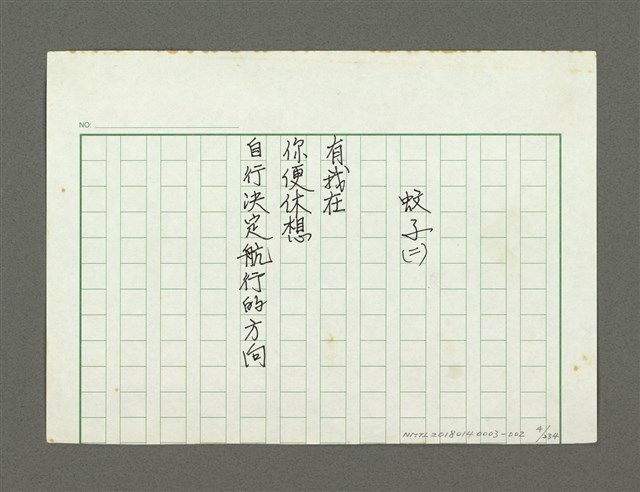 NO:
蚊子(二)
有我在
你便休想
自行决定航行的方向
NMTL20180140003-002 4/234